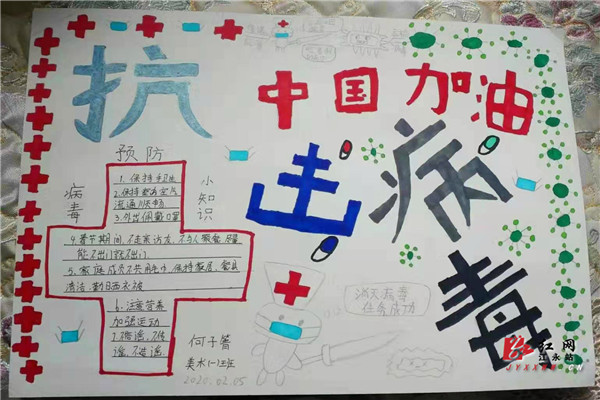 抗
中国加油
击
病
毒
预防
病毒
小知识
1. 保持手卫生
2. 保持室内空气
流通顺畅
3. 外出佩戴口罩
4. 春节期间,不走亲访友,不与人聚餐,尽量
能不出门就不出门
5. 家庭成员不共用毛巾,保持家居、餐具
清洁,勤晒衣被
6. 注意营养
加强运动
7. 不信谣,不传
谣,不造谣
消灭病毒
任务成功
美术1-1班
2020.02.05
红网
江永站
JYXXWW.CN